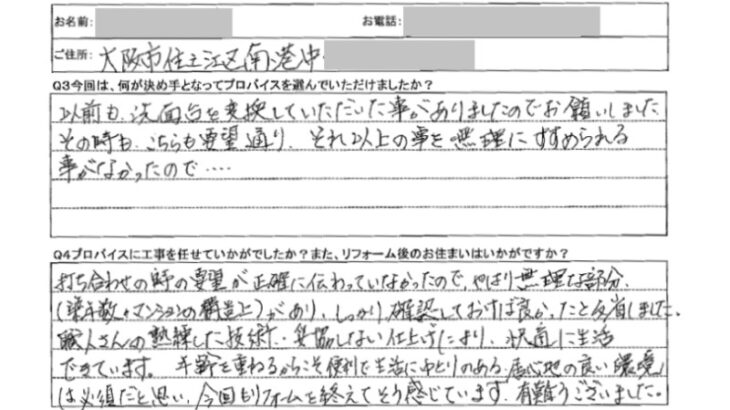 お名前: お電話:
ご住所: 大阪市住之江区南港中
Q3今回は、何が決め手となってプロバイスを選んでいただけましたか？
以前も、洗面台を変換していただいた事がありましたのでお願いしました
その時も、こちらも要望通り、それ以上の事を無理にすすめられる
事がなかったので‥‥
Q4プロバイスに工事を任せていかがでしたか？また、リフォーム後のお住まいはいかがですか？
打ち合わせの時の要望が正確に伝わっていなかったので、やはり無理な部分、
(築年数・マンションの構造上)があり、しっかり確認しておけば良かったと反省しました。
職人さんの熟練した技術・妥協しない仕上げにより、快適に生活
できています。年齢を重ねるからこそ便利で生活にゆとりのある、居心地の良い環境
は必須だと思い、今回もリフォームを終えてそう感じています。有難うございました。